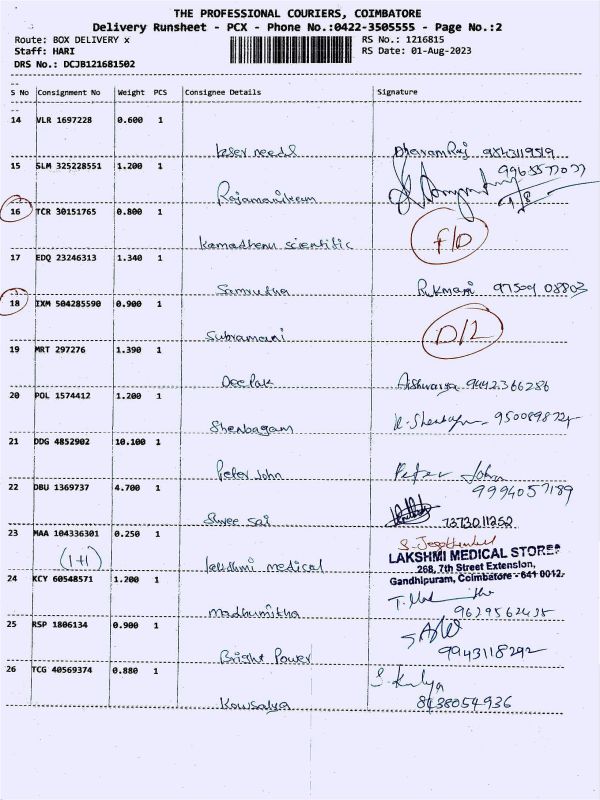 THE PROFESSIONAL COURIERS, COIMBATORE
Delivery Runsheet - PCX - Phone No.:0422-3505555 - Page No.:2
Route: BOX DELIVERY x RS No.: 1216815
Staff: HARI RS Date: 01-Aug-2023
DRS No.: DCJB121681502
S No Consignment No Weight PCS Consignee Details Signature
14 VLR 1697228 0.600 1
Laser needs DharamRaj 9843119519
15 SLM 325228551 1.200 1
Rajamanikam
16 TCR 30151765 0.800 1 F/D
Kamadhenu scientific
17 EDQ 23246313 1.340 1
Samrutha R.kmani 97509 08803
18 IXM 504285590 0.900 1 D/L
Subramani
19 MRT 297276 1.390 1
Deepak Aishwarya 9442366286
20 POL 1574412 1.200 1
Shenbagam
21 DDG 4852902 10.100 1
Peter John Peter John
9994057189
22 DBU 1369737 4.700 1
Shree sai 7373011252
23 MAA 104336301 0.250 1
(1+1) Lakshmi medical LAKSHMI MEDICAL STORES
268, 7th Street Extension,
Gandhipuram, Coimbatore - 641 0012.
24 KCY 60548571 1.200 1
Madhumitha
25 RSP 1806134 0.900 1
Bright Power 9943118292
26 TCG 40569374 0.880 1
Kowsalya 8438054936